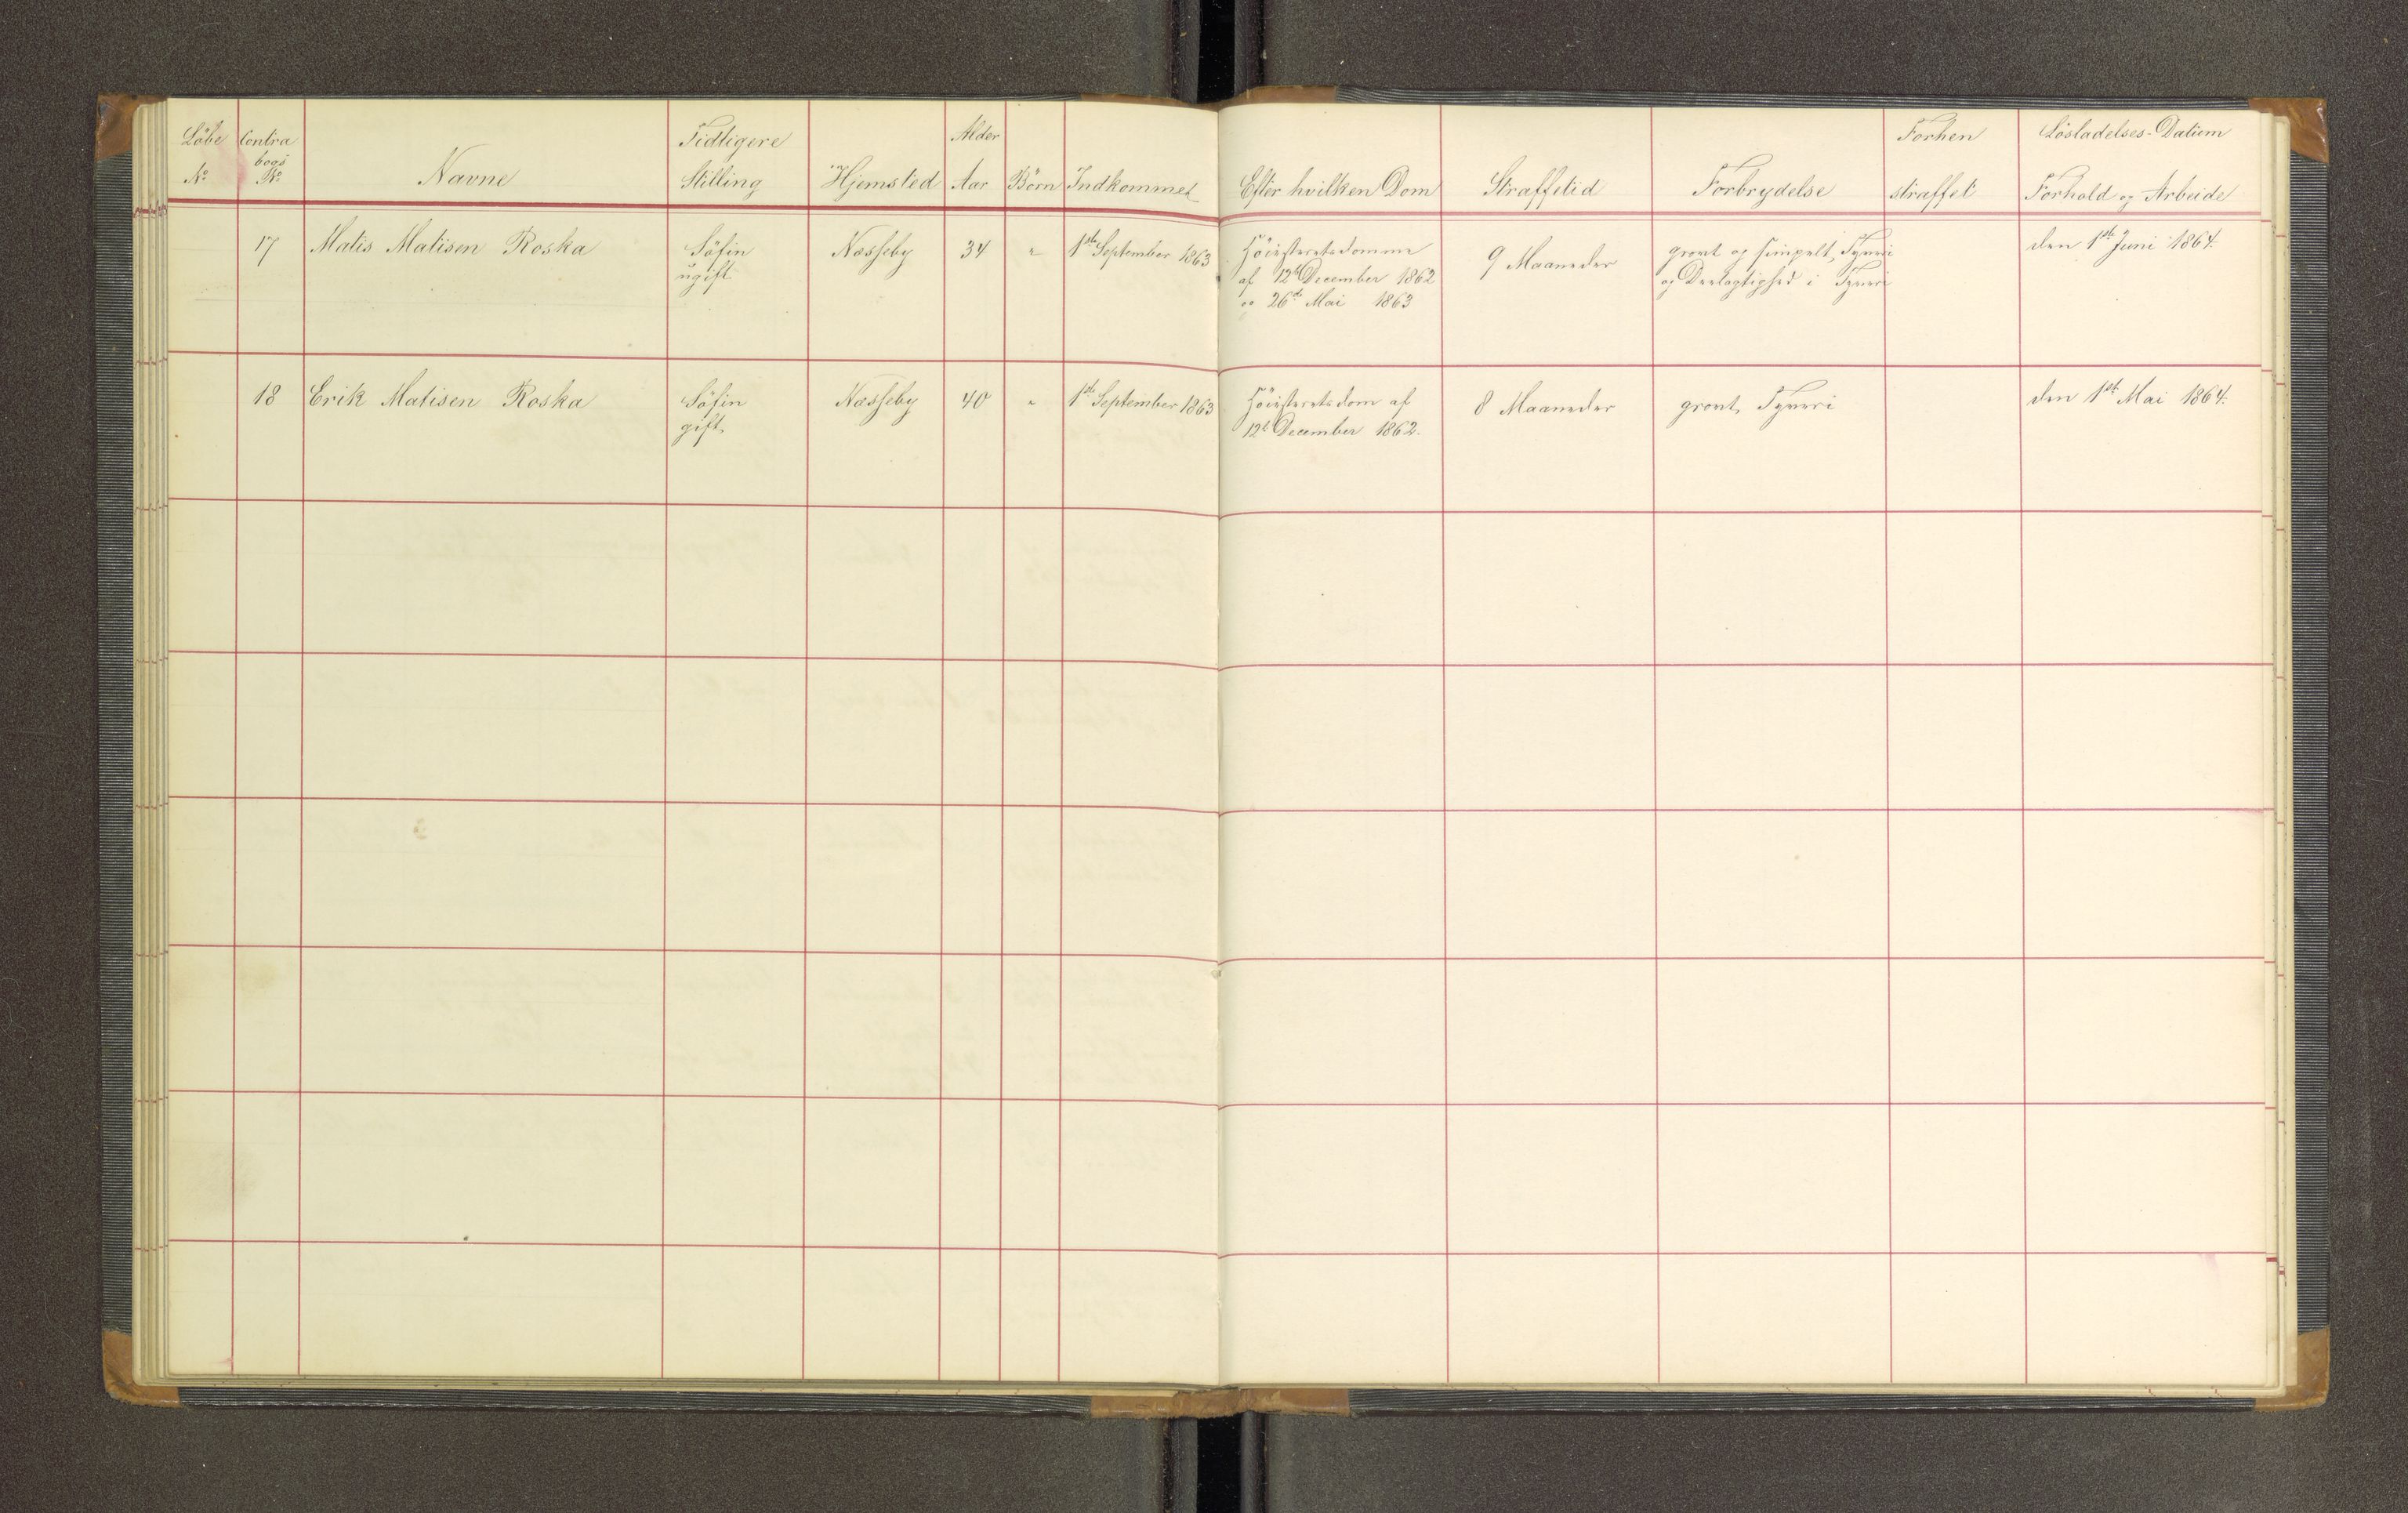 Löbe
No
Contra
bogs
No
Navne
Tidligere
Stilling
Hjemsted
Alder
Aar
Börn
Indkommet
Efter hvilken Dom
Straffetid
Forbrydelse
Forhen
straffet
Lösladelses-Datum
Forhold og Arbeide
17
Matis Matisen Roska
Söfin
ugift
Næsseby
34
"
1ste September 1863
Höiesteretsdomme
af 12te December 1862
og 26de Mai 1863
9 Maaneder
grovt og simpelt Tyveri
og Deelagtighed i Tyveri
den 1ste Juni 1864.
18
Erik Matisen Roska
Söfin
gift
Næsseby
40
"
1ste September 1863
Höiesteretsdom af
12te December 1862.
8 Maaneder
grovt Tyveri
den 1ste Mai 1864.